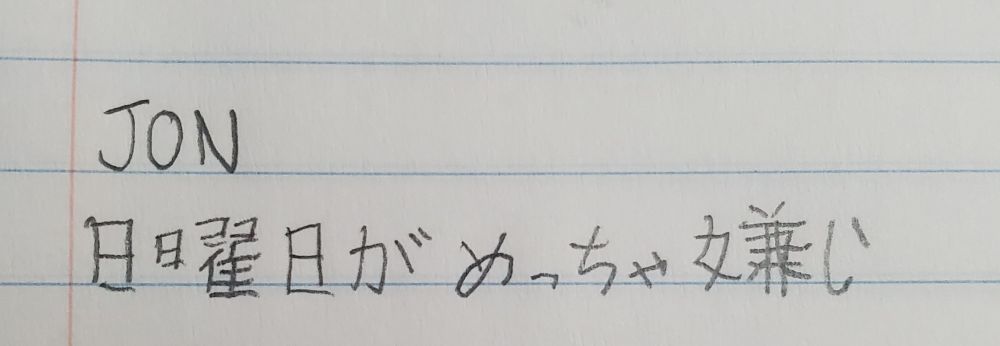 JON
日曜日がめっちゃ嫌い